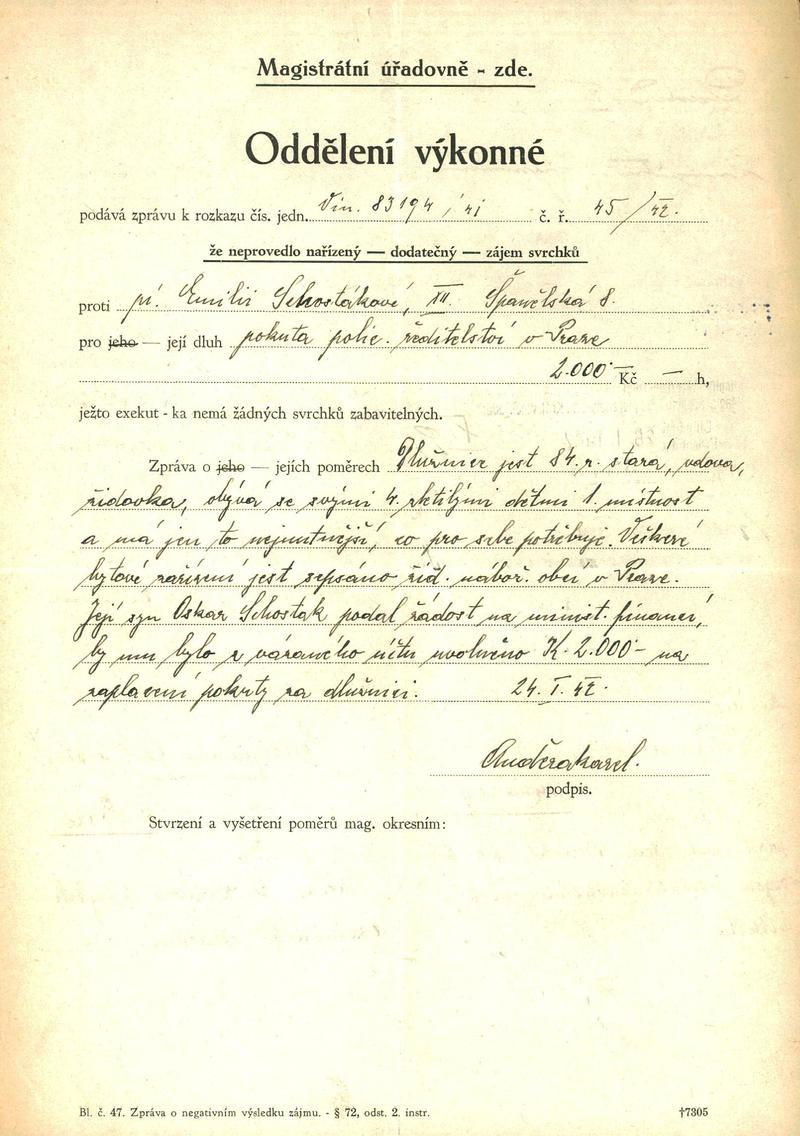 Magistrátní úřadovně - zde.
Oddělení výkonné
podává zprávu k rozkazu čís. jedn. Vin. 83194/41 č. ř. 45/42.
že neprovedlo nařízený — dodatečný — zájem svrchků
proti pí. Emilii Schostákové, XII. Španělská 8.
pro jeho — její dluh pokuta polic. ředitelství v Praze
2.000·— Kč — h,
ježto exekut - ka nemá žádných svrchků zabavitelných.
Zpráva o jeho — jejich poměrech Dlužnice jest 84. r. stará, vdova,
židovka, obývá se svými 4. dětmi 1. místnost
a má jen to nejnutnější, co pro sebe potřebuje. Veškeré
bytové zařízení jest sepsáno žid. nábož. obcí v Praze.
Její syn Oskar Schostak podal žádost na minist. financí,
by mu bylo z vázaného účtu uvolněno K. 2.000·— na
zaplacení pokuty za dlužnici. 24. I. 42.
Anděrakarel.
podpis.
Stvrzení a vyšetření poměrů mag. okresním:
Bl. č. 47. Zpráva o negativním výsledku zájmu. - § 72, odst. 2. instr. †7305